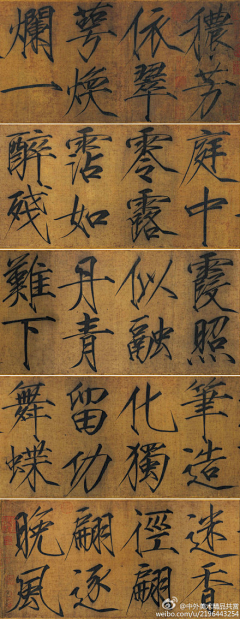 穠芳
依翠
萼煥
爛一
庭中
零露
霑如
醉殘
霞照
似融
丹青
難下
筆造
化獨
留功
舞蝶
迷香
徑翩
翩逐
晚風
@中外美术精品共赏
weibo.com/u/2196443254